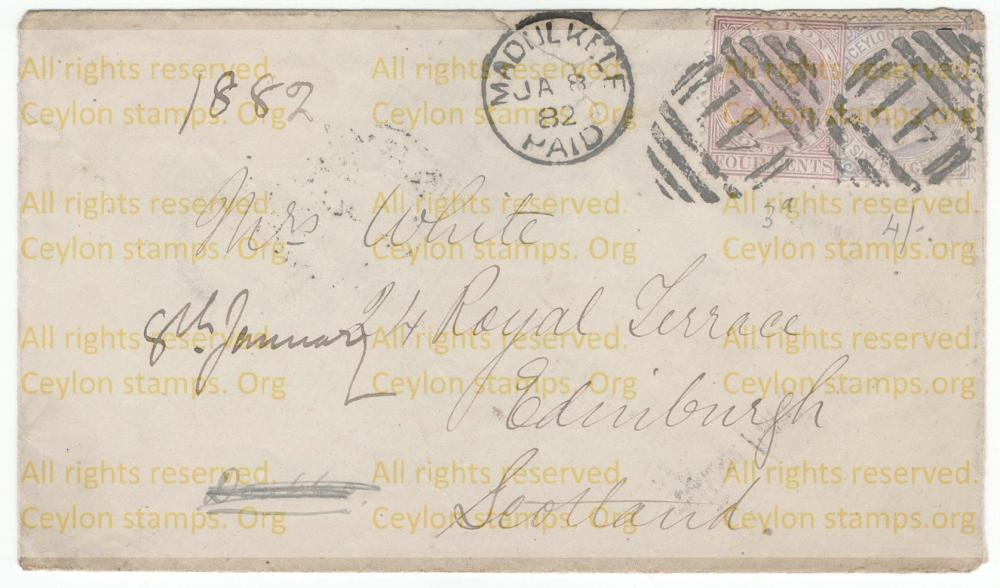 1882
MADULKELE
JA 8
82
PAID
CEYLON
FOUR CENTS
17
17
3d
4/-
Mrs White
8th January
24 Royal Terrace
Edinburgh
Scotland
All rights reserved. All rights reserved. All rights reserved.
Ceylon stamps. Org Ceylon stamps. Org Ceylon stamps. Org
All rights reserved. All rights reserved. All rights reserved.
Ceylon stamps. Org Ceylon stamps. Org Ceylon stamps. Org
All rights reserved. All rights reserved. All rights reserved.
Ceylon stamps. Org Ceylon stamps. Org Ceylon stamps. Org
All rights reserved. All rights reserved. All rights reserved.
Ceylon stamps. Org Ceylon stamps. Org Ceylon stamps. Org